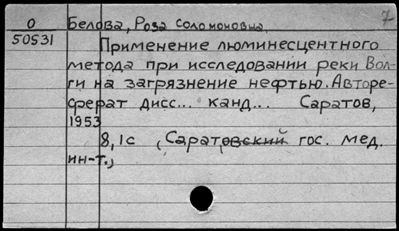 О Белова, Роза Соломоновна. 7
50531 Применение люминесцентного
метода при исследовании реки Вол-
ги на загрязнение нефтью. Авторе-
ферат дисс... канд... Саратов,
1953
8,1с (Саратовский гос. мед.
ин-т.,